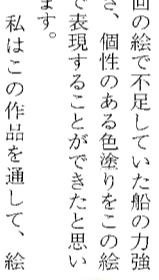 回の絵で不足していた船の力強
さ、個性のある色塗りをこの絵
で表現することができたと思い
ます。
私はこの作品を通して、絵